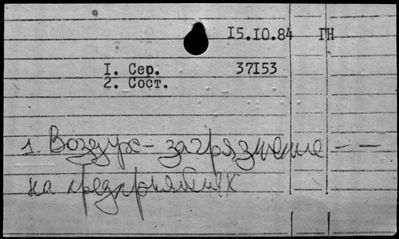 15.10.84 ГН
1. Сер. 37153
2. Сост.
1. Воздух - загрязнение - -
на предприятиях